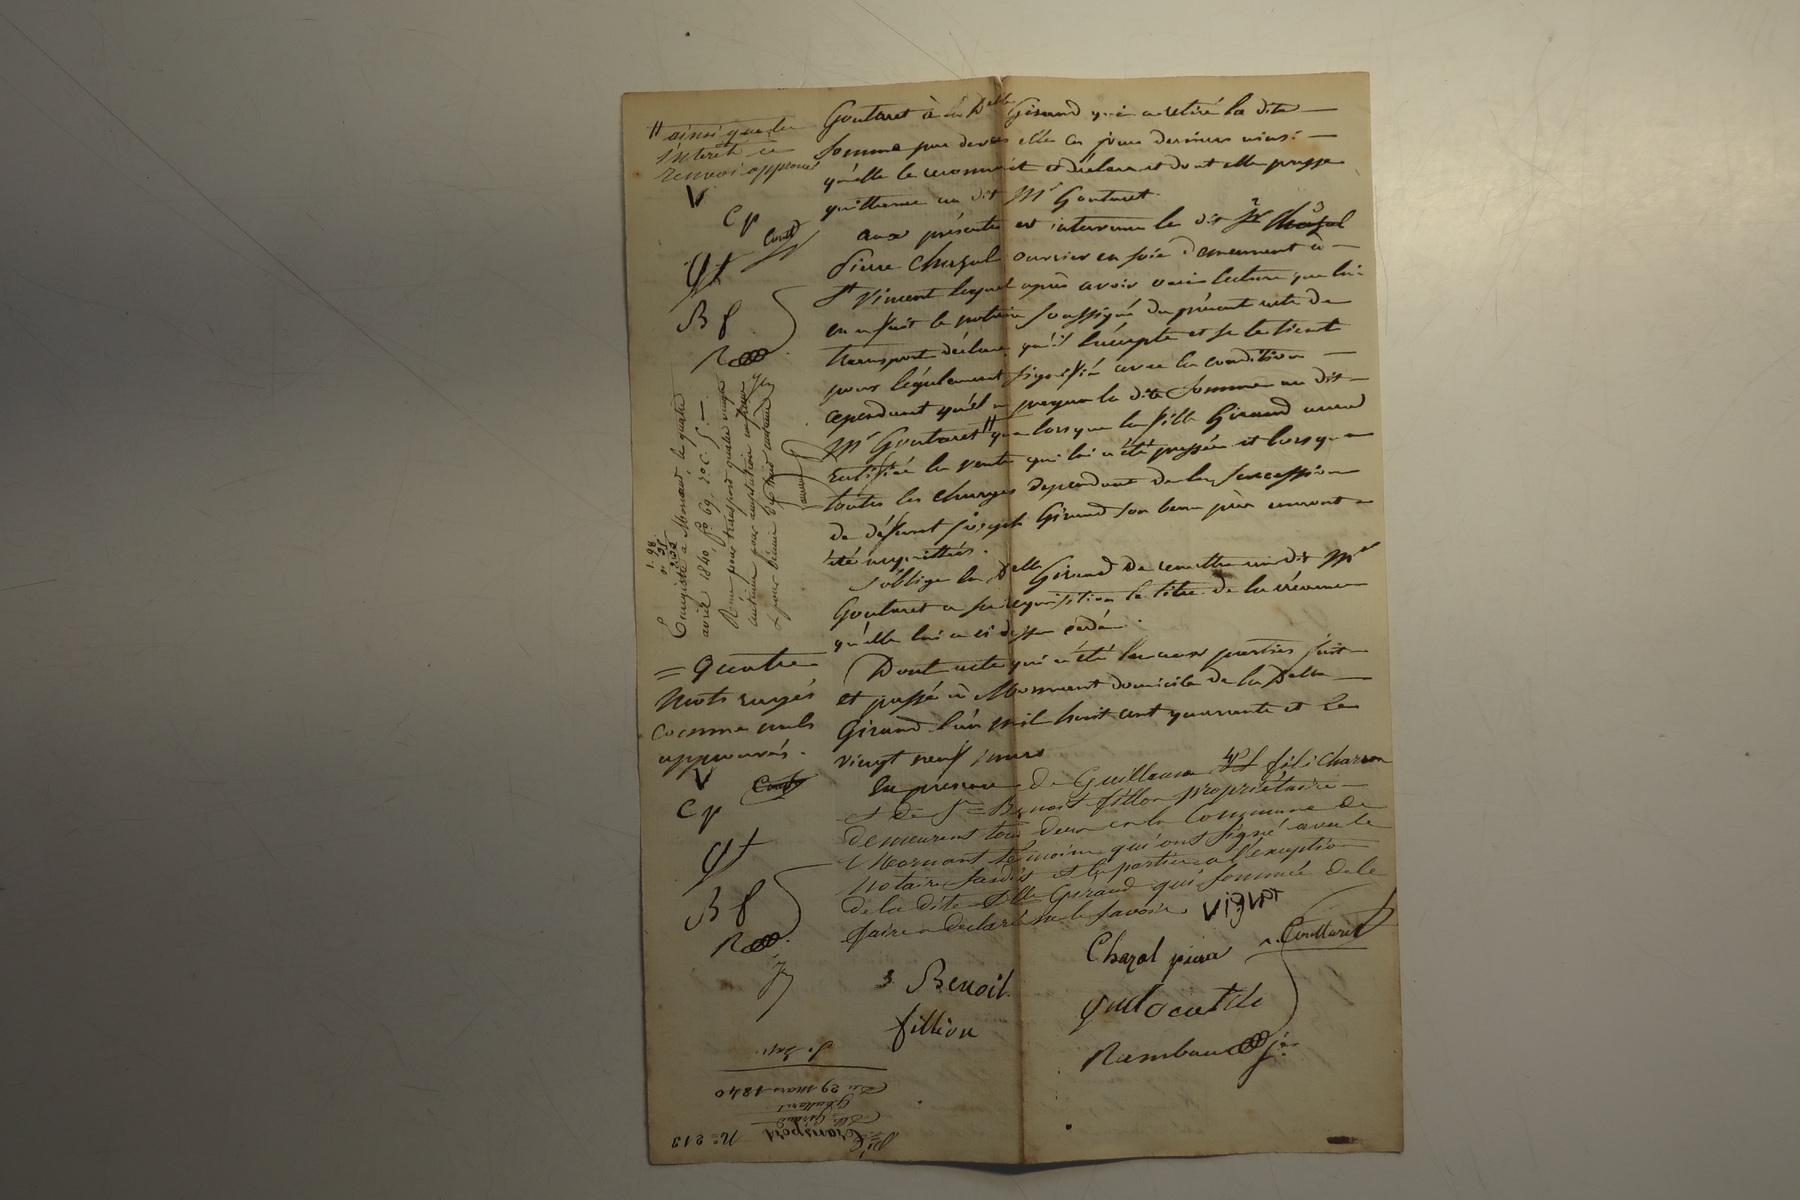 Goutaret à la Delle Giraud qui a retiré la dite
somme par devers elle ces jours derniers ainsi
qu'elle le reconnait et déclare et dont elle passe
quittance au dit Mr Goutaret.
aux présentes est intervenu le dit Sr Chazal
Pierre Chazal ouvrier en soie demeurant à
St Vincent lequel après avoir ouï lecture que lui
en a fait le notaire soussigné du présent acte de
transport déclare qu'il l'accepte et se le tient
pour légalement signifié avec la condition
cependant qu'il ne payera la dite somme au dit
Mr Goutaret # que lorsque la fille Giraud aura
ratifié la vente qui lui a été passée et lorsque
toutes les charges dependant de la succession
de défunt Joseph Giraud son beau père auront
été acquittées.
S'oblige la Delle Giraud de remettre au dit Mr
Goutaret a sa requisition le titre de la créance
qu'elle lui a ci dessus cédée.
Dont acte qui a été lu aux parties fait
et passé à Mornant domicile de la Delle
Giraud l'an mil huit cent quarante et le
vingt neuf mars
En presence de Guillaume fils charron
et de Sr Benoit fillon propriétaire
demeurant tous deux en la Commune de
Mornant témoins qui ont signé avec le
Notaire susdit et les parties a l'exception
de la dite Delle Giraud qui sommée de le
faire a declaré ne le savoir
# ainsi que les
interêts ce
renvoi approuvé
V
Cp
Gout
Gt
Bf
R
Enregistré à Mornant le quatre
avril 1840, fo 69, Vo C. 5.
= quatre
Mots rayés
comme nuls
approuvés.
V
Cp
Gout
Gt
Bf
R
Chazal pierre
Goutaret
Benoit
fillion
Rambau jne
Transport
Delle Giraud
Goutaret
Du 29 mars 1840
No 213